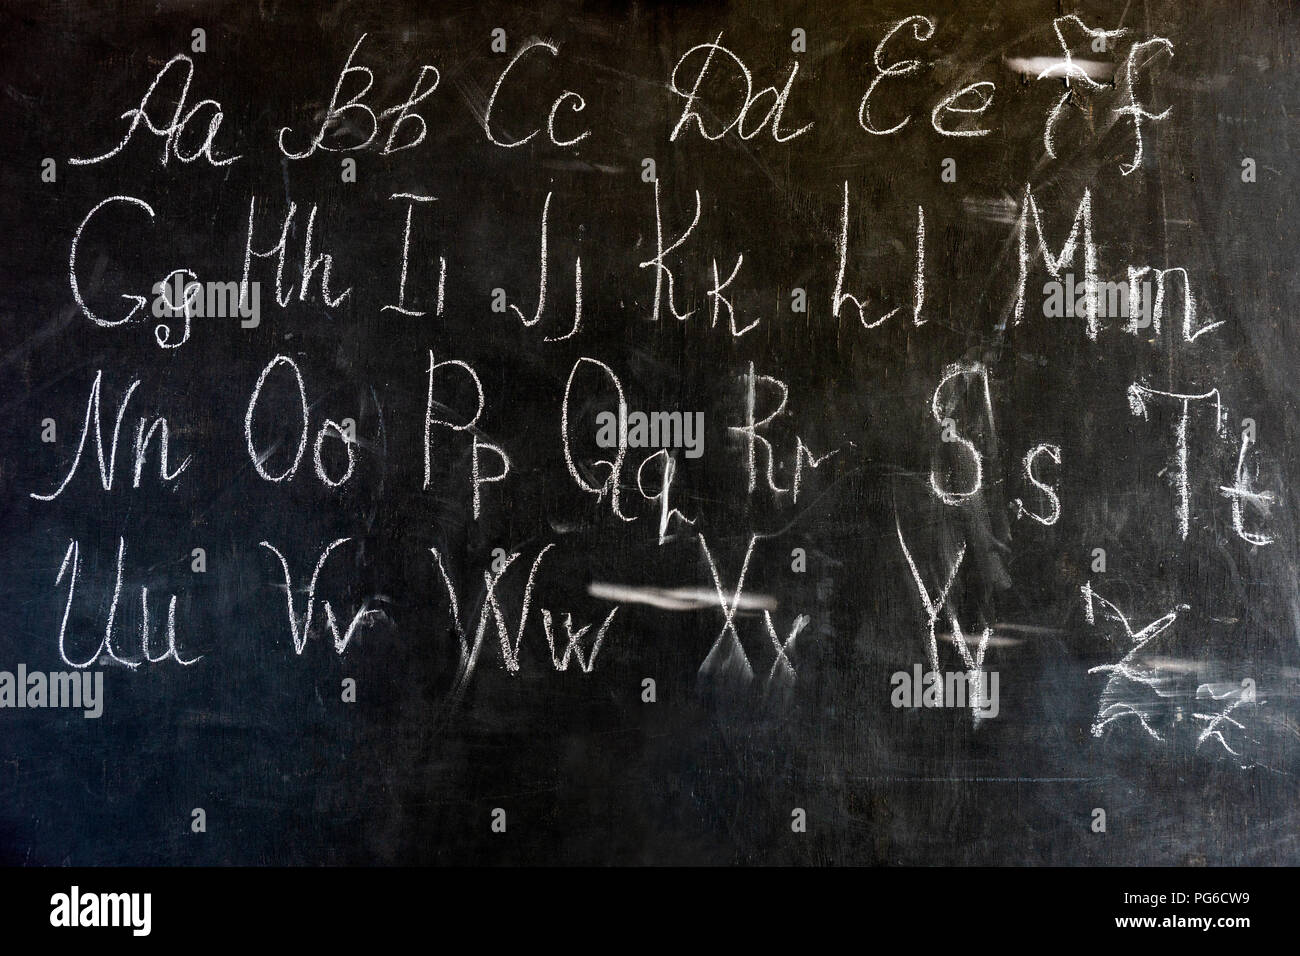 Aa Bb Cc Dd Ee Ff
Gg Hh Ii Jj Kk Ll Mm
Nn Oo Pp Qq Rr Ss Tt
Uu Vv Ww Xx Yy Zz
alamy
Image ID: PG6CW9
www.alamy.com